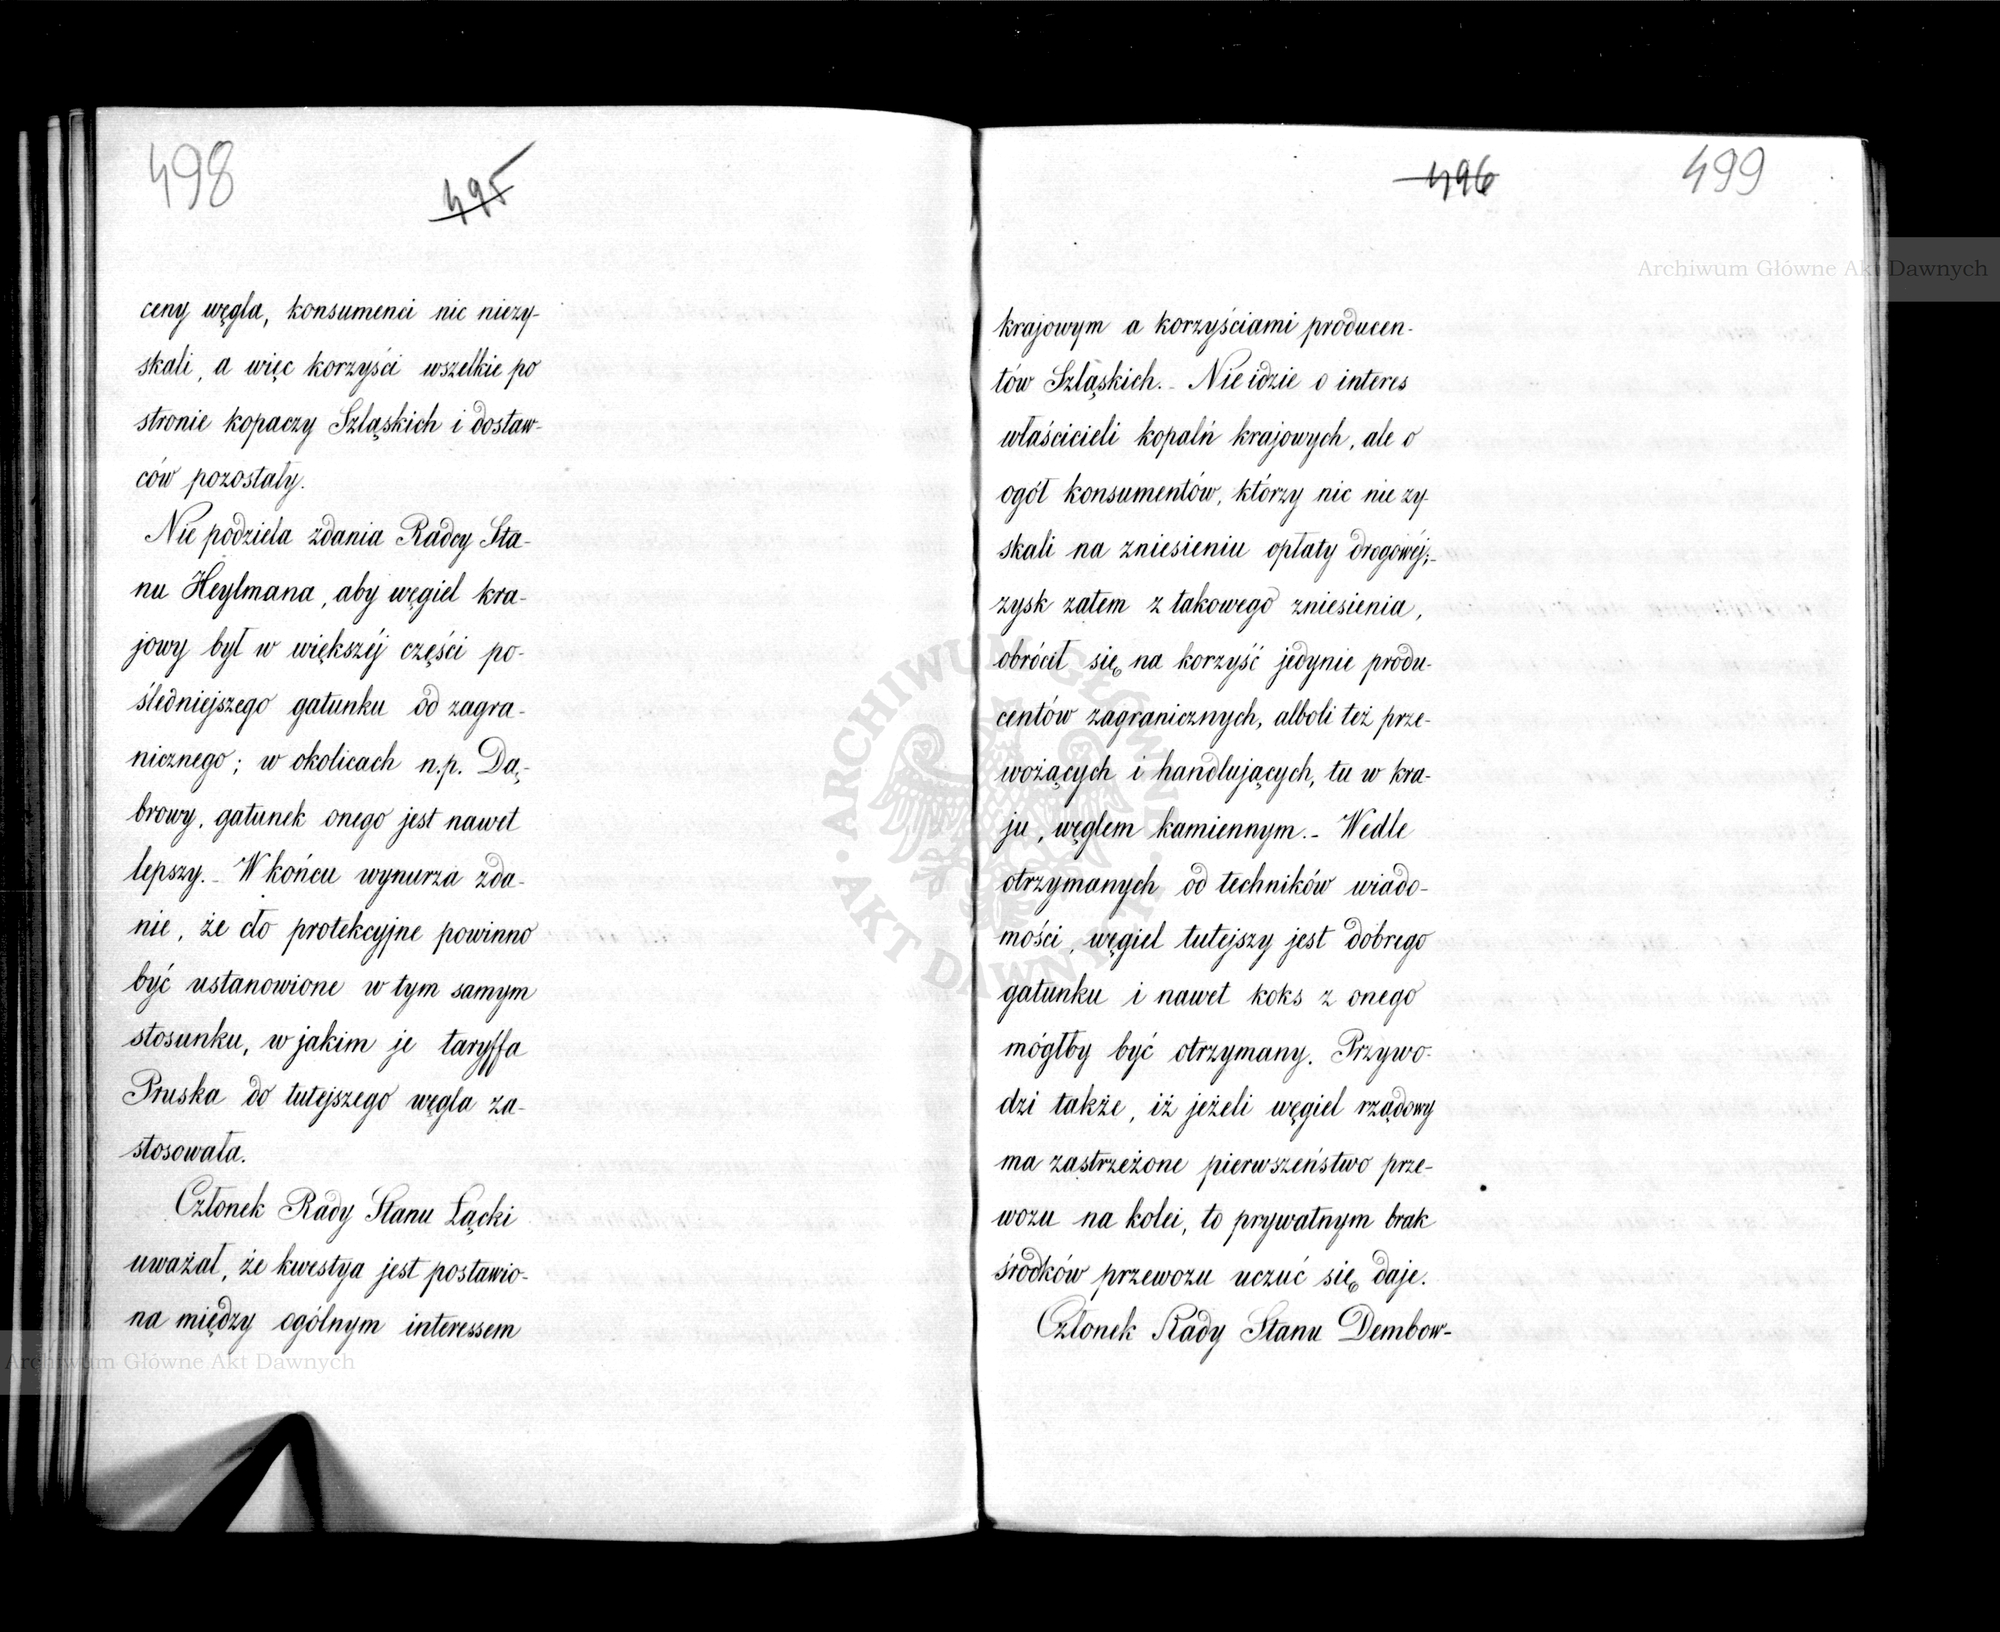 498
495
ceny węgla, konsumenci nic niezy-
skali, a więc korzyści wszelkie po
stronie kopaczy Szląskich i dostaw-
ców pozostały.
Nie podziela zdania Radcy Sta-
nu Heylmana, aby węgiel kra-
jowy był w większéj części po-
śledniejszego gatunku od zagra-
nicznego; w okolicach n.p. Dą-
browy, gatunek onego jest nawet
lepszy. - W końcu wynurza zda-
nie, że cło protekcyjne powinno
być ustanowione w tym samym
stosunku, w jakim je taryffa
Pruska do tutejszego węgla za-
stosowała.
Członek Rady Stanu Łącki
uważał, że kwestya jest postawio-
na między ogólnym interessem
496
499
krajowym a korzyściami producen-
tów Szląskich. - Nie idzie o interes
właścicieli kopalń krajowych, ale o
ogół konsumentów, którzy nic nie zy
skali na zniesieniu opłaty drogowéj; -
zysk zatem z takowego zniesienia,
obrócił się na korzyść jedynie produ-
centów zagranicznych, alboli też prze-
wożących i handlujących, tu w kra-
ju, węglem kamiennym. - Wedle
otrzymanych od techników wiado-
mości, węgiel tutejszy jest dobrego
gatunku i nawet koks z onego
mógłby być otrzymany. Przywo-
dzi także, iż jeżeli węgiel rządowy
ma zastrzeżone pierwszeństwo prze-
wozu na kolei, to prywatnym brak
środków przewozu uczuć się daje.
Członek Rady Stanu Dembow-
Archiwum Główne Akt Dawnych
Archiwum Główne Akt Dawnych
ARCHIWUM GŁÓWNE · AKT DAWNYCH ·